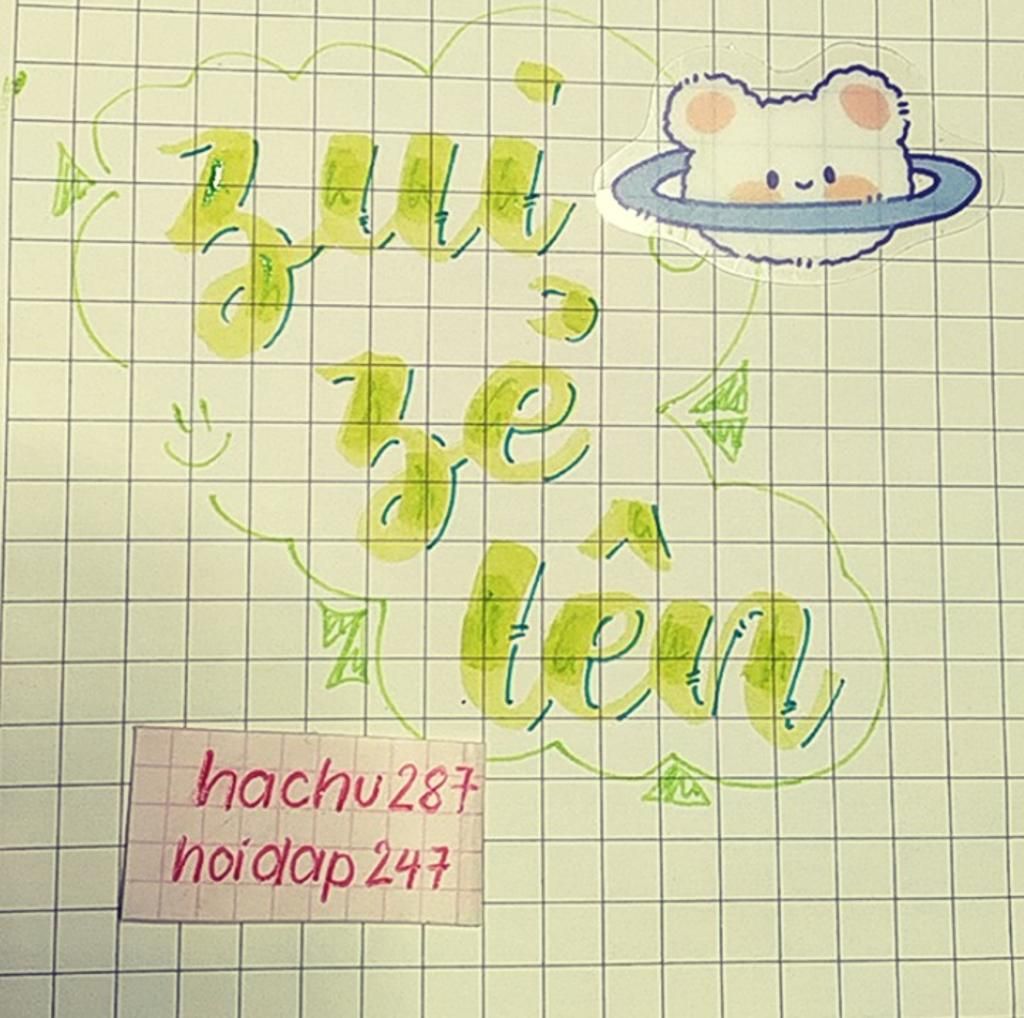 zui
zẻ
lên
hachu287
hoidap247